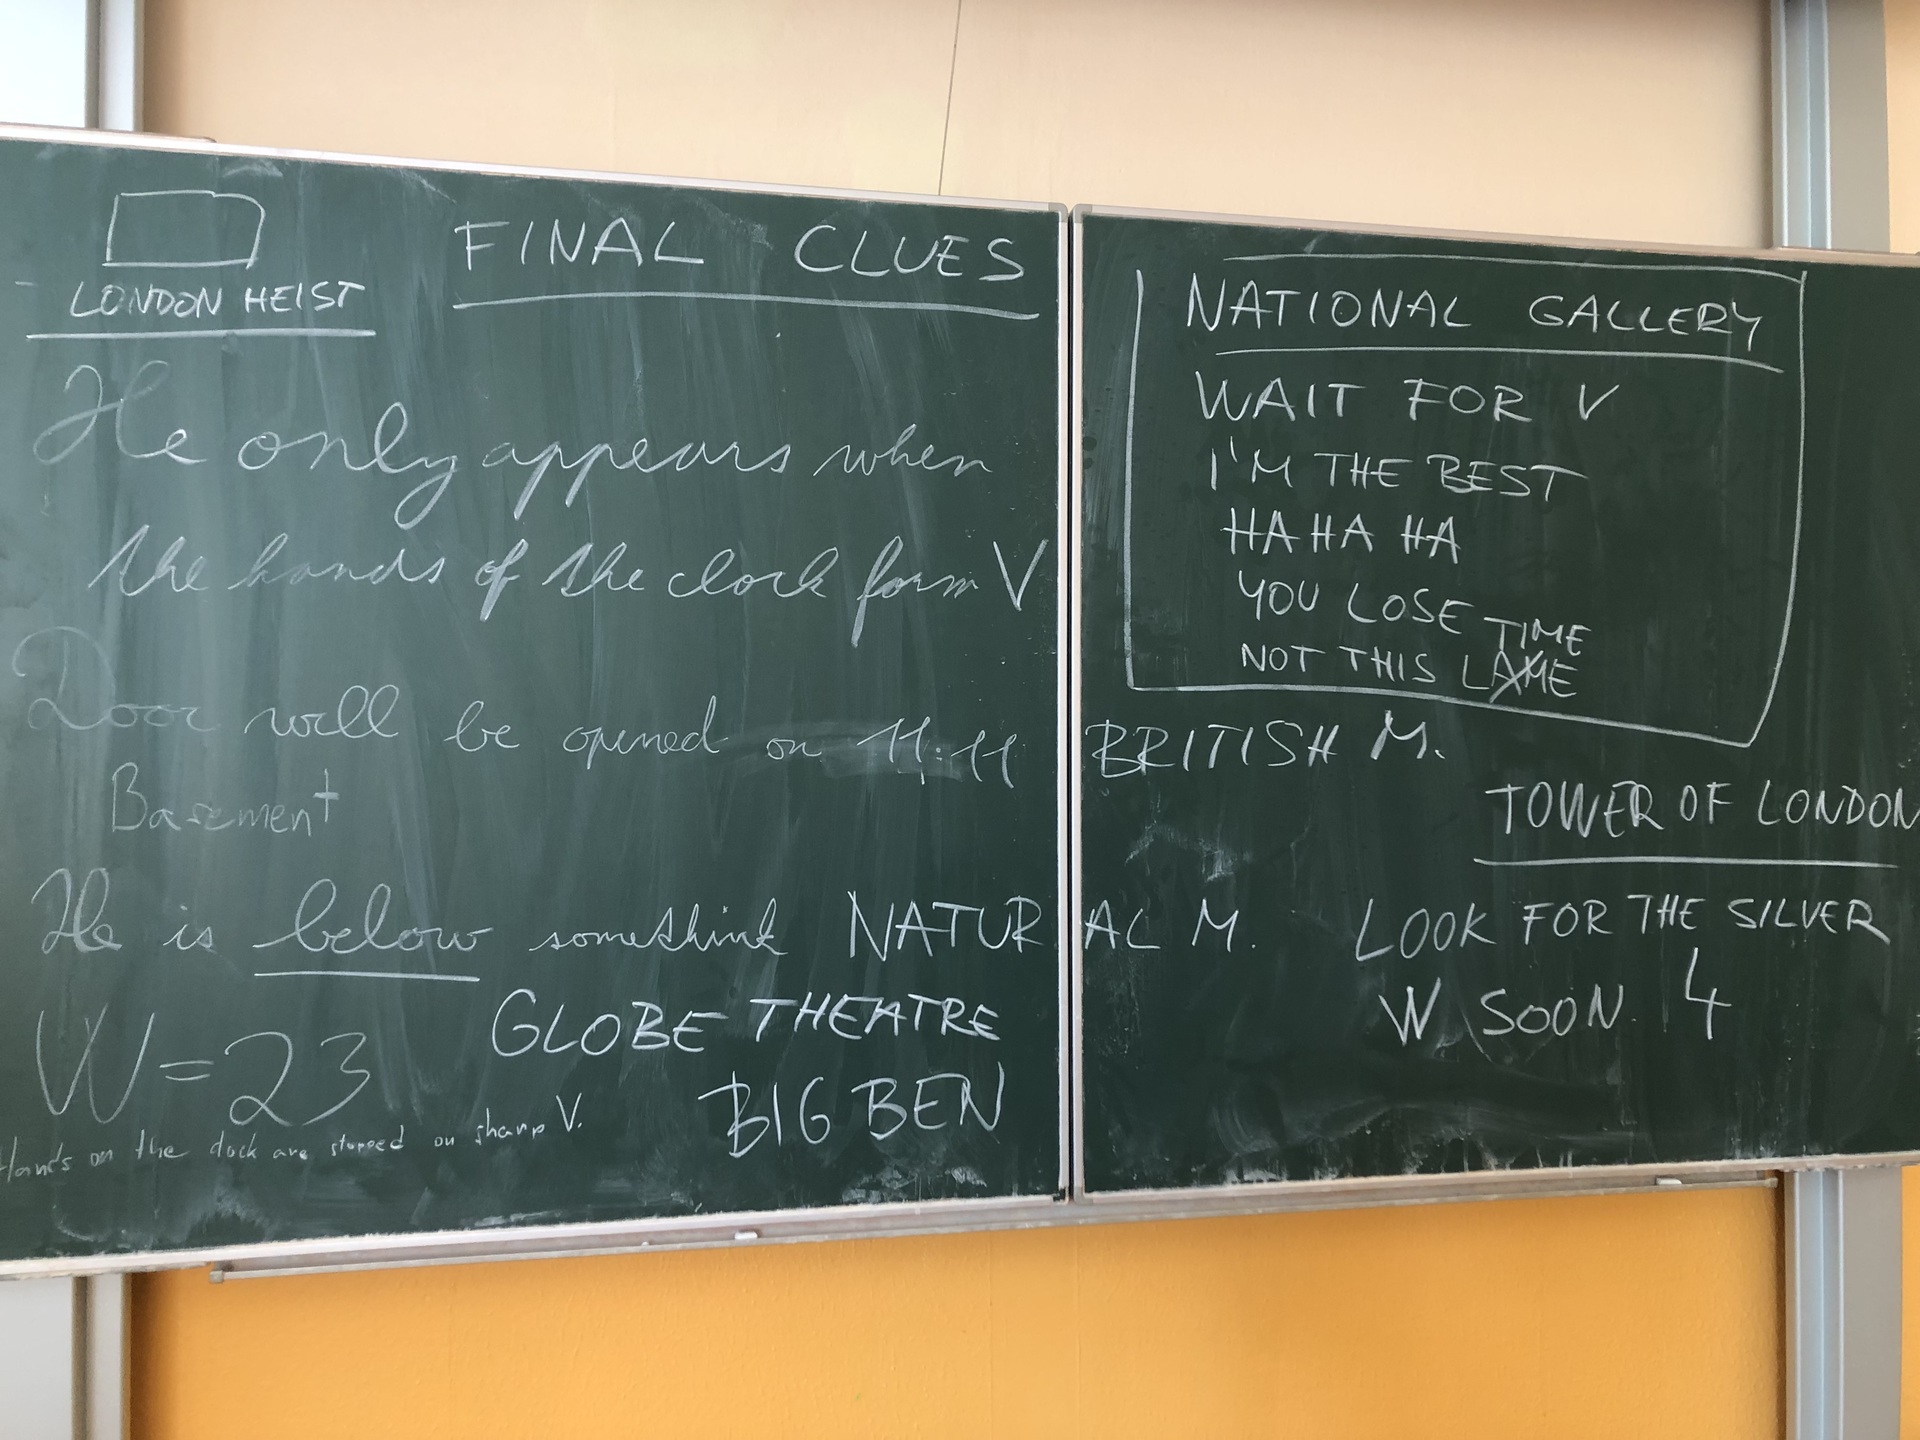 FINAL CLUES
LONDON HEIST
He only appears when
the hands of the clock form V
Door will be opened on 11:11 BRITISH M.
Basement
He is below somethink NATURAL M.
W = 23
GLOBE THEATRE
BIG BEN
Hands on the clock are stopped on sharp V.
NATIONAL GALLERY
WAIT FOR V
I'M THE BEST
HA HA HA
YOU LOSE
TIME
NOT THIS LAME
TOWER OF LONDON
LOOK FOR THE SILVER
W SOON 4